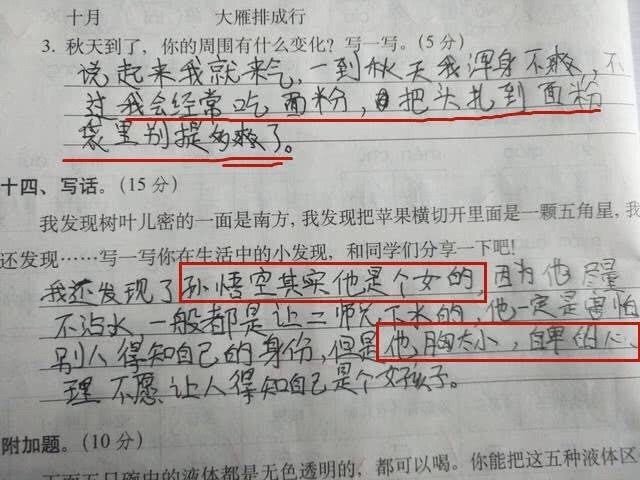 十月　　　　大雁排成行
3. 秋天到了，你的周围有什么变化？写一写。(5 分)
说起来我就来气，一到秋天我浑身不爽，不
过我会经常吃面粉，把头扎到面粉
袋里别提多爽了。
十四、写话。(15 分)
我发现树叶儿密的一面是南方，我发现把苹果横切开里面是一颗五角星，我
还发现……写一写你在生活中的小发现，和同学们分享一下吧！
我还发现了孙悟空其实他是个女的，因为他尽量
不沾水一般都是让二师兄下水的，他一定是害怕
别人得知自己的身份，但是他胸太小，自卑的心
理不愿让人得知自己是个女孩子。
附加题。(10 分)
下面五只碗中的液体都是无色透明的，都可以喝。你能把这五种液体区